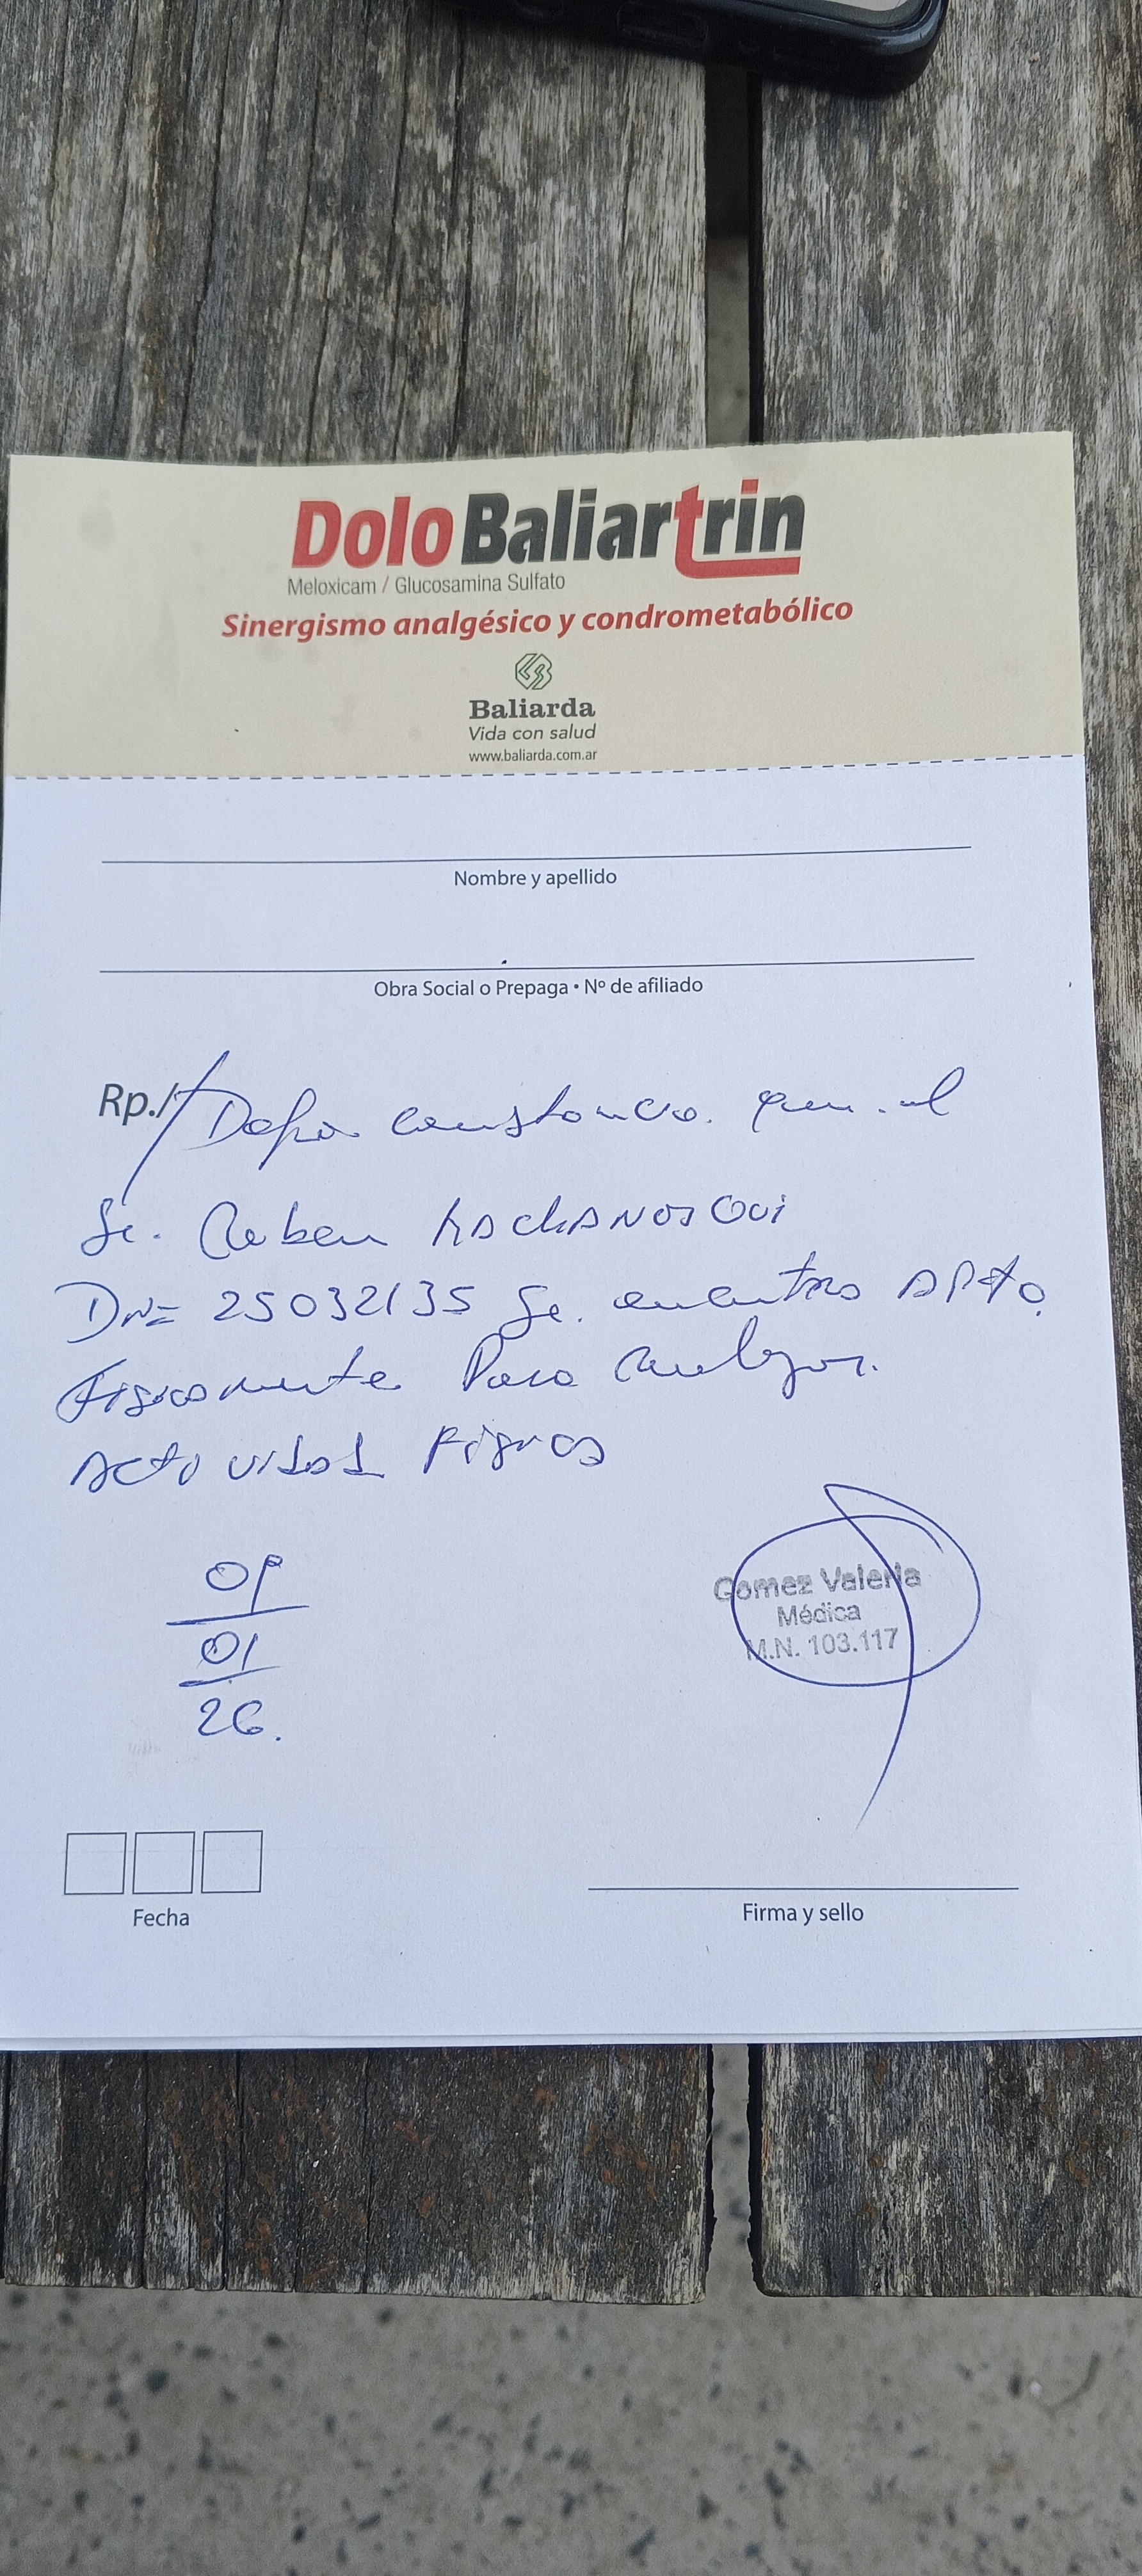 Dolo Baliartrin
Meloxicam / Glucosamina Sulfato
Sinergismo analgésico y condrometabólico
Baliarda
Vida con salud
www.baliarda.com.ar
Nombre y apellido
Obra Social o Prepaga • Nº de afiliado
Rp./ Dejo constancia que el
Sr. Ruben
25032135 Se encuentra APto
Fisicamente Para realizar
actividad Fisica
09
01
26.
Gomez Valeria
Médica
M.N. 103.117
Fecha
Firma y sello